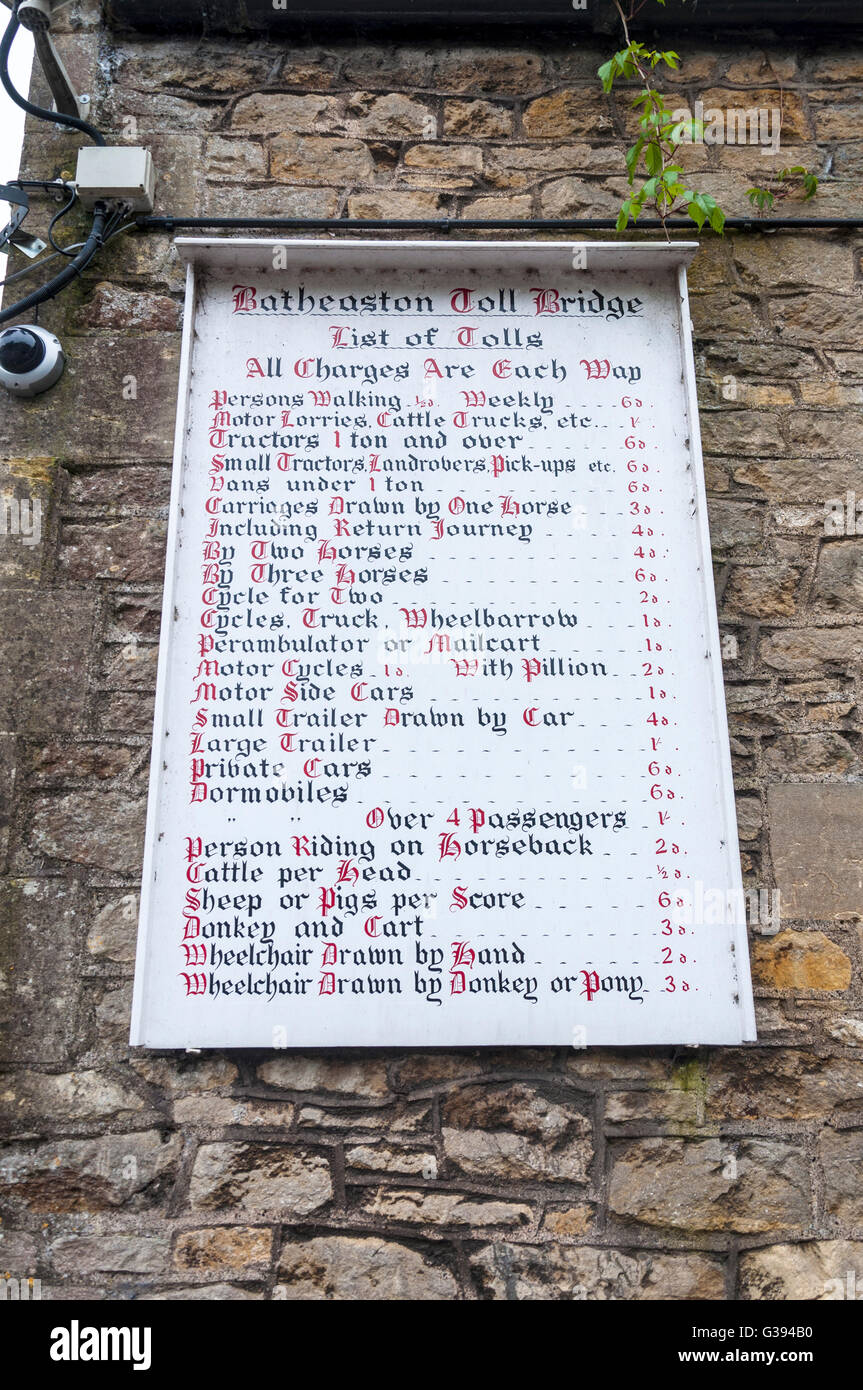 Batheaston Toll Bridge
List of Tolls
All Charges Are Each Way
Persons Walking ½d. Weekly 6d.
Motor Lorries, Cattle Trucks, etc. 1/-
Tractors 1 ton and over 6d.
Small Tractors, Landrovers, Pick-ups etc. 6d.
Vans under 1 ton 6d.
Carriages Drawn by One Horse 3d.
Including Return Journey 4d.
By Two Horses 4d.
By Three Horses 6d.
Cycle for Two 2d.
Cycles, Truck, Wheelbarrow 1d.
Perambulator or Mailcart 1d.
Motor Cycles 1d. With Pillion 2d.
Motor Side Cars 1d.
Small Trailer Drawn by Car 4d.
Large Trailer 1/-
Private Cars 6d.
Dormobiles 6d.
" " Over 4 Passengers 1/-
Person Riding on Horseback 2d.
Cattle per Head ½d.
Sheep or Pigs per Score 6d.
Donkey and Cart 3d.
Wheelchair Drawn by Hand 2d.
Wheelchair Drawn by Donkey or Pony 3d.
alamy
alamy stock photo
G394B0
www.alamy.com